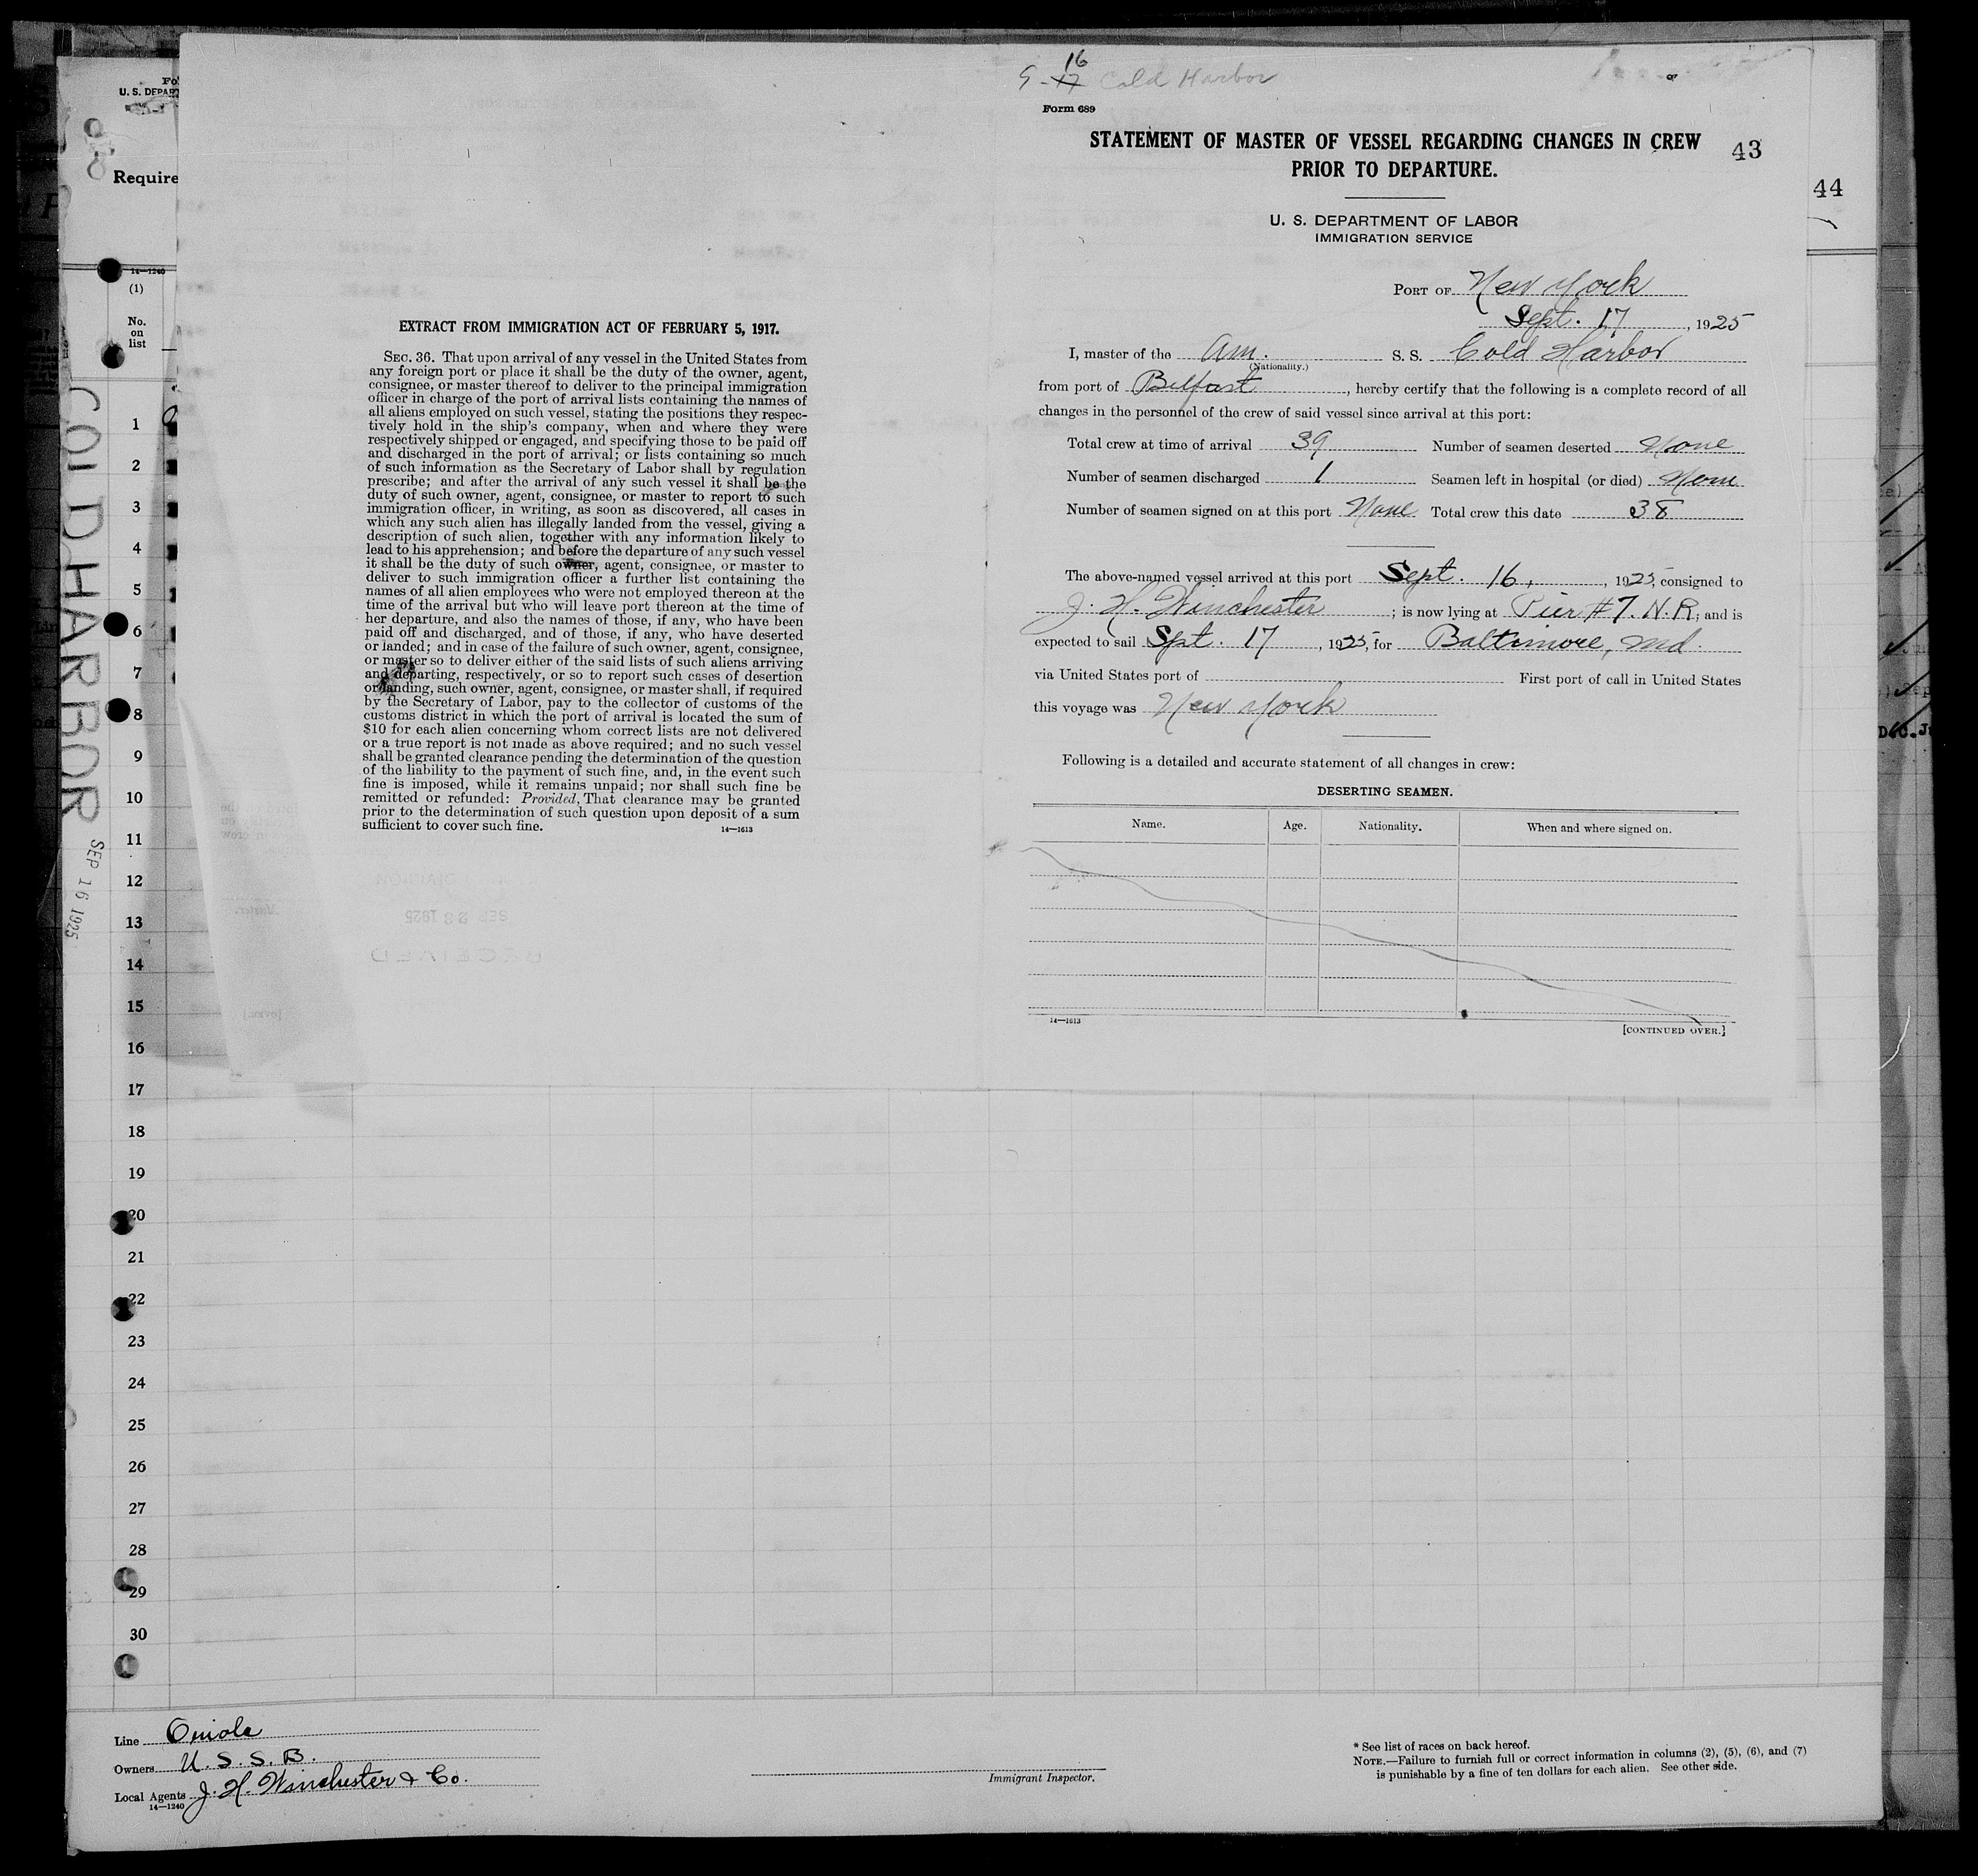 9-17 16 Cold Harbor
Form 689
STATEMENT OF MASTER OF VESSEL REGARDING CHANGES IN CREW
PRIOR TO DEPARTURE.
43
44
U. S. DEPARTMENT OF LABOR
IMMIGRATION SERVICE
PORT OF New York
Sept. 17, 1925
I, master of the Am. S. S. Cold Harbor
(Nationality.)
from port of Belfast, hereby certify that the following is a complete record of all
changes in the personnel of the crew of said vessel since arrival at this port:
Total crew at time of arrival 39 Number of seamen deserted None
Number of seamen discharged 1 Seamen left in hospital (or died) None
Number of seamen signed on at this port None. Total crew this date 38
The above-named vessel arrived at this port Sept. 16, 1925, consigned to
J. H. Winchester; is now lying at Pier #7. N.R; and is
expected to sail Spt. 17, 1925, for Baltimore, Md.
via United States port of First port of call in United States
this voyage was New York
Following is a detailed and accurate statement of all changes in crew:
DESERTING SEAMEN.
Name. Age. Nationality. When and where signed on.
14—1613
[CONTINUED OVER.]
EXTRACT FROM IMMIGRATION ACT OF FEBRUARY 5, 1917.
SEC. 36. That upon arrival of any vessel in the United States from
any foreign port or place it shall be the duty of the owner, agent,
consignee, or master thereof to deliver to the principal immigration
officer in charge of the port of arrival lists containing the names of
all aliens employed on such vessel, stating the positions they respec-
tively hold in the ship's company, when and where they were
respectively shipped or engaged, and specifying those to be paid off
and discharged in the port of arrival; or lists containing so much
of such information as the Secretary of Labor shall by regulation
prescribe; and after the arrival of any such vessel it shall be the
duty of such owner, agent, consignee, or master to report to such
immigration officer, in writing, as soon as discovered, all cases in
which any such alien has illegally landed from the vessel, giving a
description of such alien, together with any information likely to
lead to his apprehension; and before the departure of any such vessel
it shall be the duty of such owner, agent, consignee, or master to
deliver to such immigration officer a further list containing the
names of all alien employees who were not employed thereon at the
time of the arrival but who will leave port thereon at the time of
her departure, and also the names of those, if any, who have been
paid off and discharged, and of those, if any, who have deserted
or landed; and in case of the failure of such owner, agent, consignee,
or master so to deliver either of the said lists of such aliens arriving
and departing, respectively, or so to report such cases of desertion
or landing, such owner, agent, consignee, or master shall, if required
by the Secretary of Labor, pay to the collector of customs of the
customs district in which the port of arrival is located the sum of
$10 for each alien concerning whom correct lists are not delivered
or a true report is not made as above required; and no such vessel
shall be granted clearance pending the determination of the question
of the liability to the payment of such fine, and, in the event such
fine is imposed, while it remains unpaid; nor shall such fine be
remitted or refunded: Provided, That clearance may be granted
prior to the determination of such question upon deposit of a sum
sufficient to cover such fine.
14—1613
U. S. DEPART
Require
14—1240
(1)
No.
on
list
COLD HARBOR
SEP 16 1925
1
2
3
4
5
6
7
8
9
10
11
12
13
14
15
16
17
18
19
20
21
22
23
24
25
26
27
28
29
30
Line Oriole
Owners U. S. S. B.
Local Agents J. H. Winchester & Co.
14—1240
Immigrant Inspector.
* See list of races on back hereof.
NOTE.—Failure to furnish full or correct information in columns (2), (5), (6), and (7)
is punishable by a fine of ten dollars for each alien. See other side.